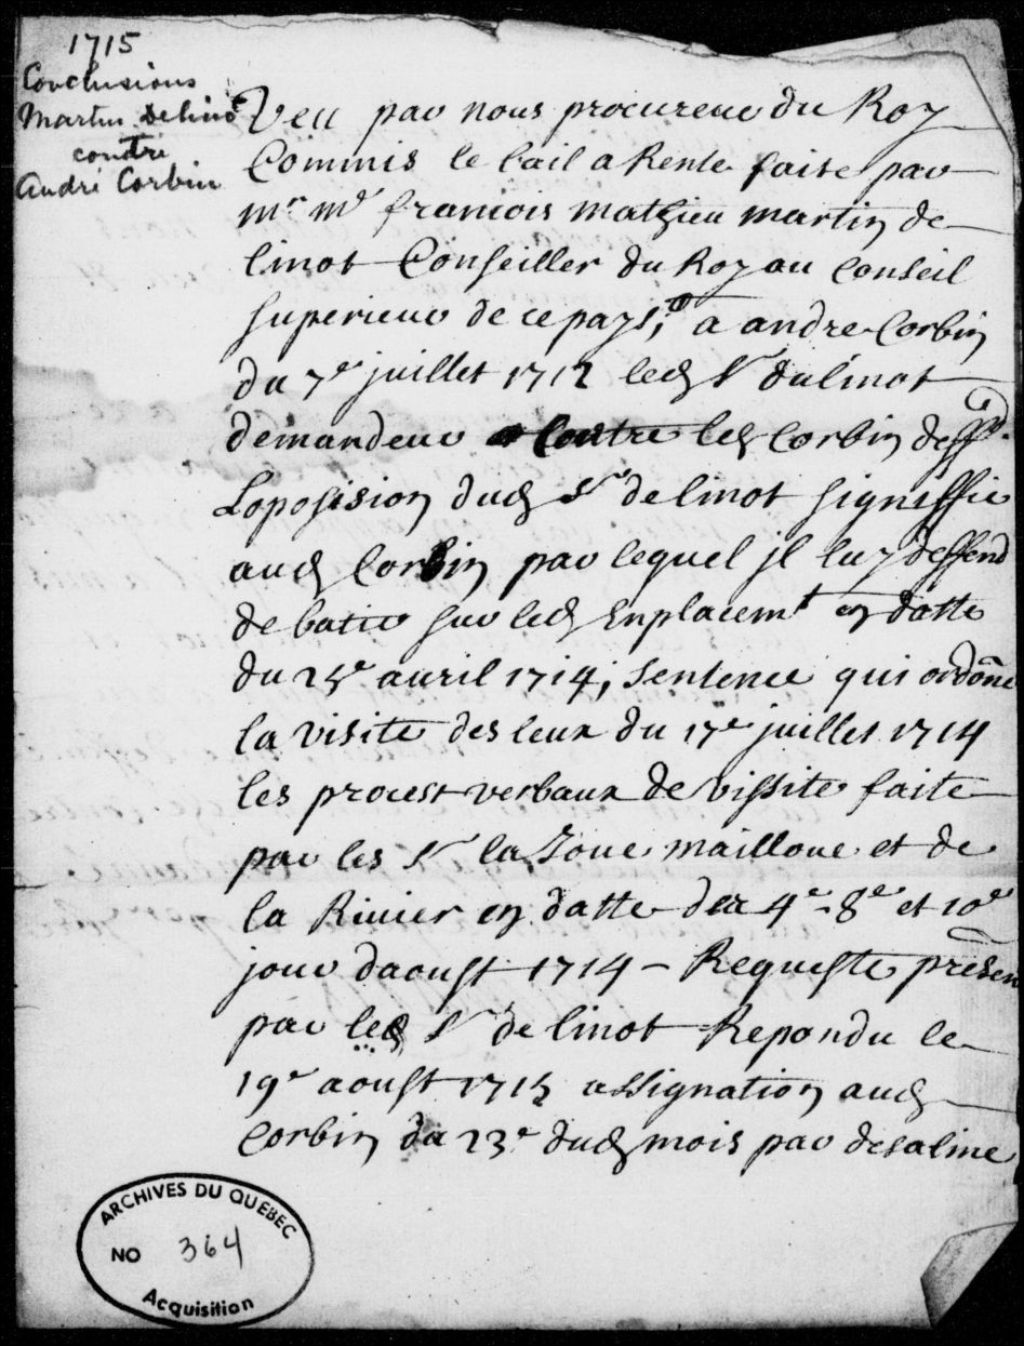 1715
Conclusions
Martin Delino
contre
André Corbin
Veu par nous procureur du Roy
Commis le bail a Rente faite par
mr. me francois mathieu martin de
linot Conseiller du Roy au Conseil
superieur de ce pays, a andre Corbin
du 7e juillet 1712 led Sr dulinot
demandeur contre led Corbin deffd.
Loposision dud Sr de linot signiffie
aud Corbin par lequel jl luy deffend
de batir sur led Enplacemt en datte
du 25e auril 1714, Sentence qui ordõne
la visite des leux du 17e juillet 1714
les procest verbaux de vissite faite
par les Sr la Joue mailloue et de
la Riuier en datte des 4e - 8e et 10e
jour daoust 1714 - Requeste presen
par led Sr de linot Repondu le
19e aoust 1715 assignation aud
Corbin du 23e dud mois par desaline
ARCHIVES DU QUEBEC
NO 364
Acquisition